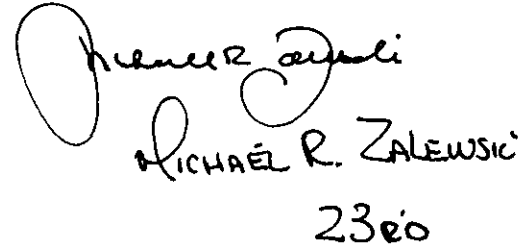 Michael R. Zalewski
MICHAEL R. ZALEWSKI
23RD